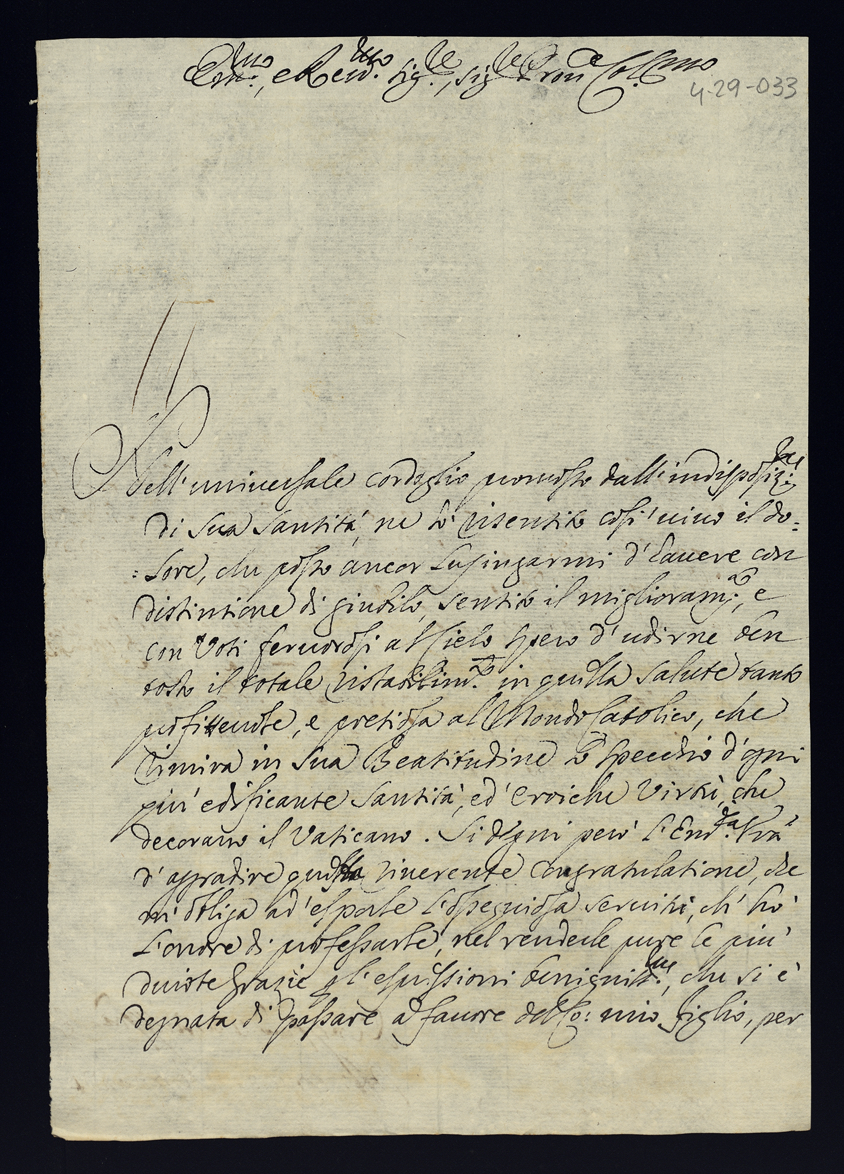 Em̃o, e Reu̅mo. Sig.re, Sig.re Pron̅e Col.mo
4-29-033
Nell'universale cordoglio promosso dall'indisposiz.ne
di Sua Santità, ne hò risentito così vivo il do:
:lore, che posso ancor lusingarmi d'havere con
distintione di giubilo, sentito il miglioram.to, e
con Voti fervorosi al Cielo spero d'udirne ben
tosto il totale ristabilim.to in quella salute tanto
profittevole, e pretiosa al Mondo Catolico, che
rimira in Sua Beatitudine lo specchio d'ogni
più edificante Santità, ed'eroiche Virtù, che
decorano il Vaticano. Si degni però l'Em.za Vr̃a
d'aggradire questa riverente congratulatione, che
m'obliga ad'esporle l'ossequiosa servitù, ch'hò
l'onore di professarle, nel renderle pure le più
divote grazie p̱ l'espressioni benigniss.me, che si è
degnata di passare à favore del Co: mio figlio, per